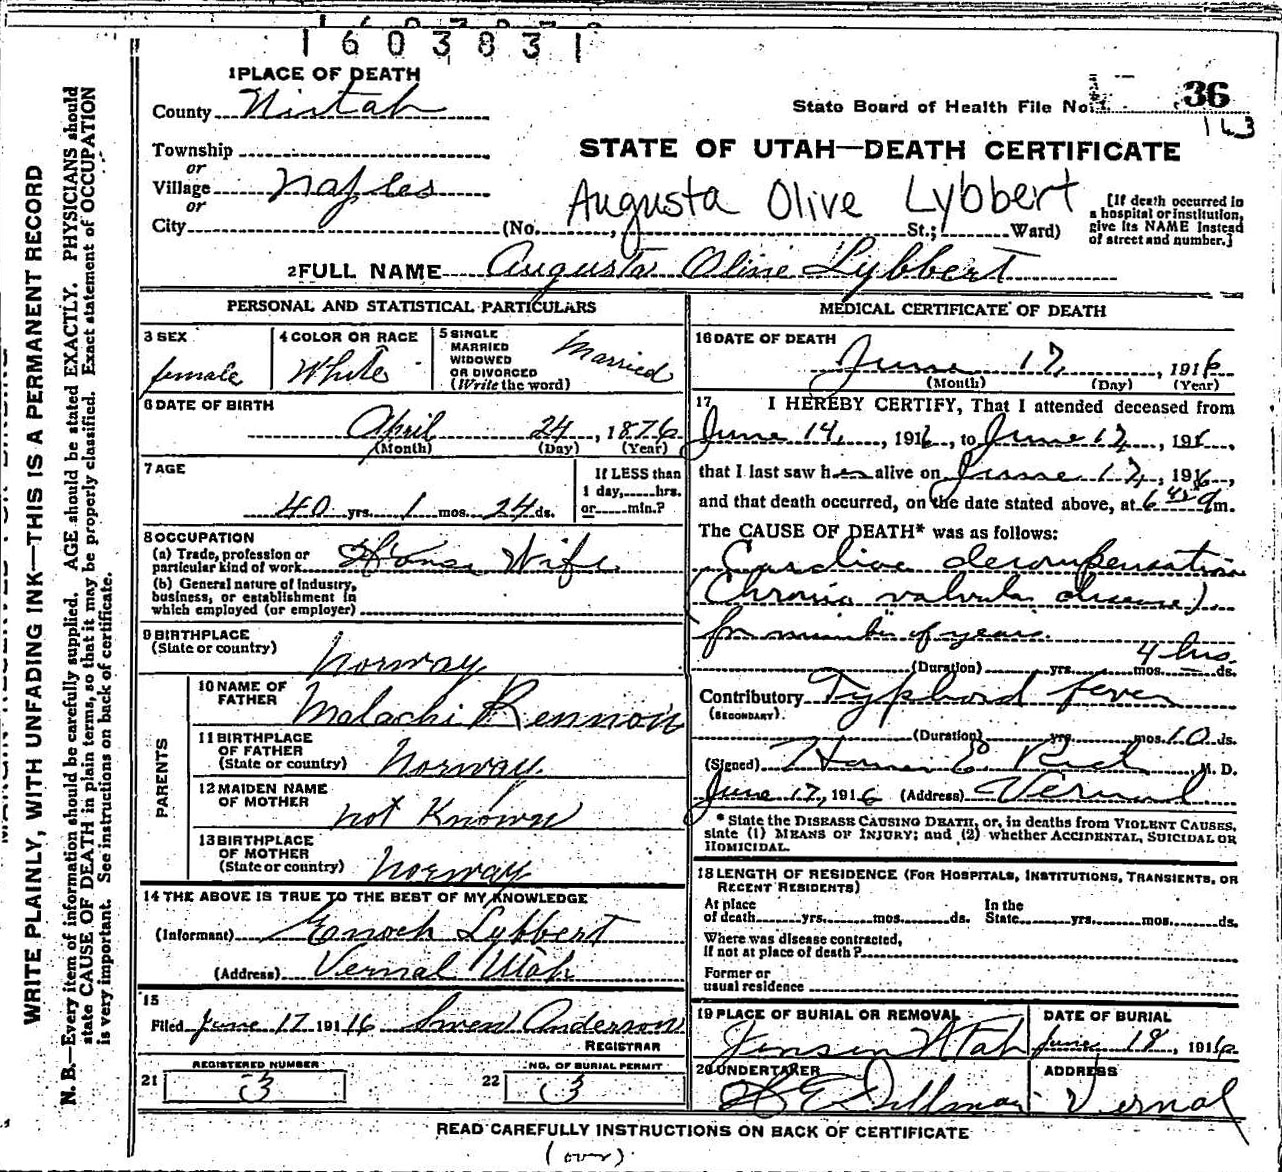 1603831
1 PLACE OF DEATH
County Uintah
State Board of Health File No. 36
163
Township
or
Village Naples
or
City
STATE OF UTAH—DEATH CERTIFICATE
Augusta Olive Lybbert
(No. , St.; Ward)
[If death occurred in a hospital or institution, give its NAME instead of street and number.]
2 FULL NAME Augusta Oline Lybbert
PERSONAL AND STATISTICAL PARTICULARS
3 SEX
female
4 COLOR OR RACE
White
5 SINGLE
MARRIED
WIDOWED
OR DIVORCED
(Write the word)
Married
6 DATE OF BIRTH
April 24, 1876
(Month) (Day) (Year)
7 AGE
40 yrs. 1 mos. 24 ds.
If LESS than
1 day, hrs.
or min.?
8 OCCUPATION
(a) Trade, profession or
particular kind of work House Wife
(b) General nature of industry,
business, or establishment in
which employed (or employer)
9 BIRTHPLACE
(State or country)
Norway
PARENTS
10 NAME OF
FATHER
Malachi Rennon
11 BIRTHPLACE
OF FATHER
(State or country) Norway
12 MAIDEN NAME
OF MOTHER
not Known
13 BIRTHPLACE
OF MOTHER
(State or country) Norway
14 THE ABOVE IS TRUE TO THE BEST OF MY KNOWLEDGE
(Informant) Enoch Lybbert
(Address) Vernal Utah
15
Filed June 17 1916 Swen Anderson
REGISTRAR
21 REGISTERED NUMBER
3
22 NO. OF BURIAL PERMIT
3
MEDICAL CERTIFICATE OF DEATH
16 DATE OF DEATH
June 17, 1916
(Month) (Day) (Year)
17 I HEREBY CERTIFY, That I attended deceased from
June 14, 1916, to June 17, 191 ,
that I last saw her alive on June 17, 1916,
and that death occurred, on the date stated above, at 6 45 a m.
The CAUSE OF DEATH* was as follows:
Cardiac decompensation
(Chronic valvular disease)
for number of years.
4 hrs.
(Duration) yrs. mos. ds.
Contributory Typhoid fever
(SECONDARY)
(Duration) yrs. mos. 10 ds.
(Signed) Homer E Rich M. D.
June 17, 1916 (Address) Vernal
* State the DISEASE CAUSING DEATH, or, in deaths from VIOLENT CAUSES,
state (1) MEANS OF INJURY; and (2) whether ACCIDENTAL, SUICIDAL OR
HOMICIDAL.
18 LENGTH OF RESIDENCE (FOR HOSPITALS, INSTITUTIONS, TRANSIENTS, OR
RECENT RESIDENTS)
At place
of death yrs. mos. ds.
In the
State yrs. mos. ds.
Where was disease contracted,
If not at place of death?
Former or
usual residence
19 PLACE OF BURIAL OR REMOVAL
Jensen Utah
DATE OF BURIAL
June 18, 1916
20 UNDERTAKER
ADDRESS
Vernal
READ CAREFULLY INSTRUCTIONS ON BACK OF CERTIFICATE
(over)
WRITE PLAINLY, WITH UNFADING INK—THIS IS A PERMANENT RECORD
N. B.—Every item of information should be carefully supplied. AGE should be stated EXACTLY. PHYSICIANS should
state CAUSE OF DEATH in plain terms, so that it may be properly classified. Exact statement of OCCUPATION
is very important. See instructions on back of certificate.